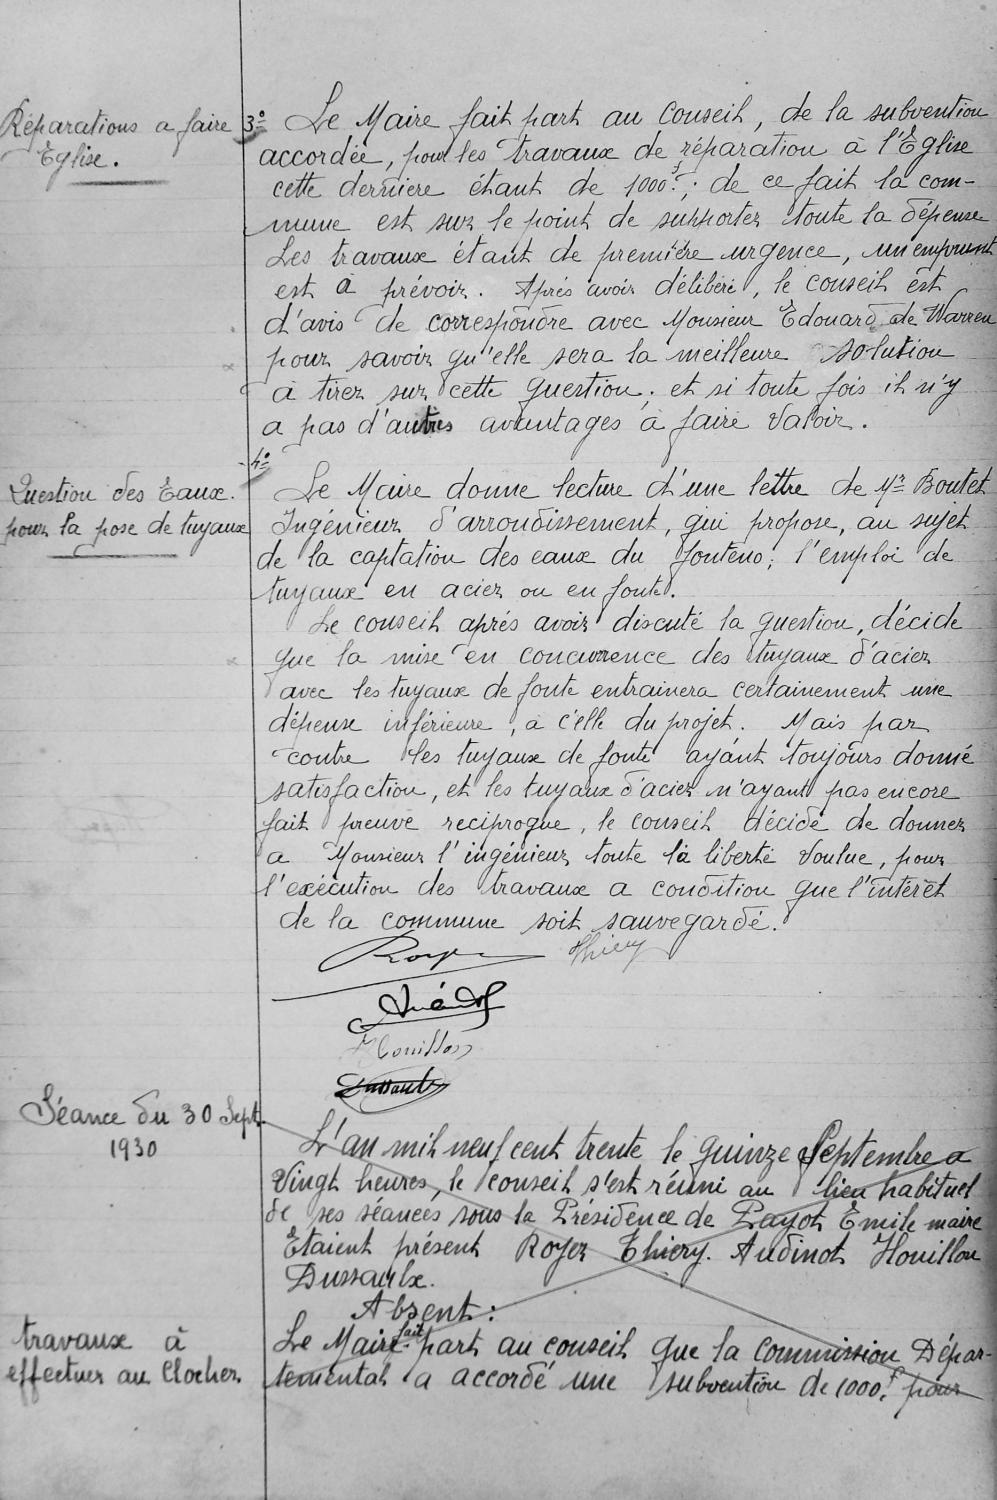 Réparations a faire
Eglise.
3° Le Maire fait part au Conseil, de la subvention
accordée, pour les travaux de réparation à l'Eglise
cette derniere étant de 1000f; de ce fait la com-
mune est sur le point de supporter toute la dépense
Les travaux étant de première urgence, un emprunt
est à prévoir. Après avoir délibéré, le conseil est
d'avis de correspondre avec Monsieur Edouard de Warren
pour savoir qu'elle sera la meilleure solution
à tirer sur cette question; et si toute fois il n'y
a pas d'autres avantages à faire valoir.
4°
Question des Eaux.
pour la pose de tuyaux
Le Maire donne lecture d'une lettre de Mr Boutet
Ingénieur d'arrondissement, qui propose, au sujet
de la captation des eaux du fonteno; l'emploi de
tuyaux en acier ou en fonte.
Le conseil après avoir discuté la question, décide
que la mise en concurrence des tuyaux d'acier
avec les tuyaux de fonte entrainera certainement une
dépense inférieure, à celle du projet. Mais par
contre les tuyaux de fonte ayant toujours donné
satisfaction, et les tuyaux d'acier n'ayant pas encore
fait preuve reciproque, le conseil décide de donner
a Monsieur l'ingénieur toute la liberté voulue, pour
l'exécution des travaux a condition que l'intérêt
de la commune soit sauvegardé.
Royer Thiery
Audinot
Houillon
Dussaulx
Séance du 30 Sept.
1930
L'an mil neuf cent trente le quinze Septembre a
Vingt heures, le conseil s'est réuni au lieu habituel
de ses séances sous la Présidence de Payot Emile maire
Etaient présent Royer Thiery. Audinot Houillon
Dussaulx.
Absent:
travaux à
effectuer au Clocher
Le Maire fait part au conseil que la Commission Dépar-
temental a accordé une subvention de 1000f pour